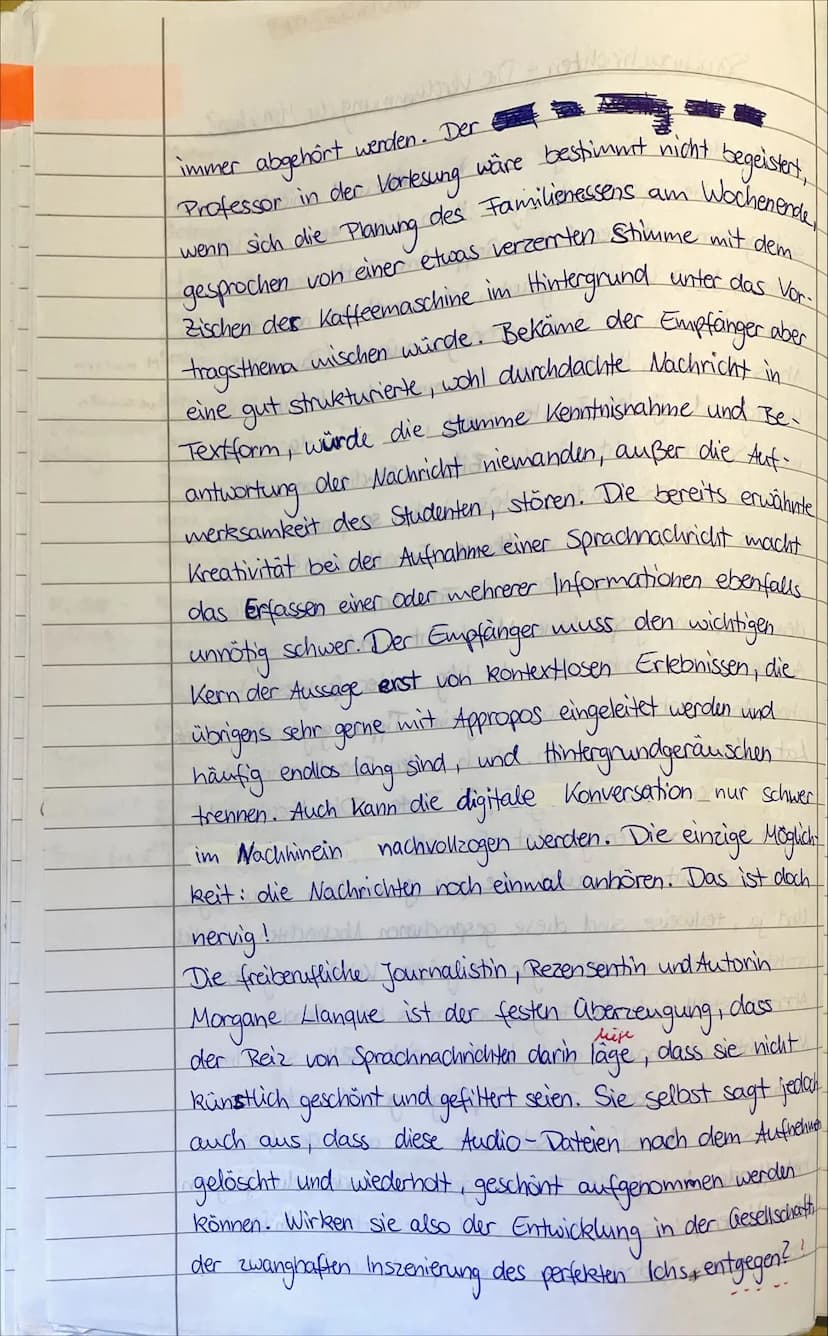 immer abgehört werden. Der
Professor in der Vorlesung wäre bestimmt nicht begeistert,
wenn sich die Planung des Familienessens am Wochenende,
gesprochen von einer etwas verzerrten Stimme mit dem
Zischen der Kaffeemaschine im Hintergrund unter das Vor-
tragsthema mischen würde. Bekäme der Empfänger aber
eine gut strukturierte, wohl durchdachte Nachricht in
Textform, würde die stumme Kenntnisnahme und Be-
antwortung der Nachricht niemanden, außer die Auf-
merksamkeit des Studenten, stören. Die bereits erwähnte
Kreativität bei der Aufnahme einer Sprachnachricht macht
das Erfassen einer oder mehrerer Informationen ebenfalls
unnötig schwer. Der Empfänger muss den wichtigen
Kern der Aussage erst von kontextlosen Erlebnissen, die
übrigens sehr gerne mit Appropos eingeleitet werden und
häufig endlos lang sind, und Hintergrundgeräuschen
trennen. Auch kann die digitale Konversation nur schwer
im Nachhinein nachvollzogen werden. Die einzige Möglich-
keit: die Nachrichten noch einmal anhören. Das ist doch
nervig!
Die freiberufliche Journalistin, Rezensentin und Autorin
Morgane Llanque ist der festen Überzeugung, dass
der Reiz von Sprachnachrichten darin läge, dass sie nicht
künstlich geschönt und gefiltert seien. Sie selbst sagt jedoch
auch aus, dass diese Audio-Dateien nach dem Aufnehmen
gelöscht und wiederholt, geschönt aufgenommen werden
können. Wirken sie also der Entwicklung in der Gesellschaft,
der zwanghaften Inszenierung des perfekten Ichs, entgegen?